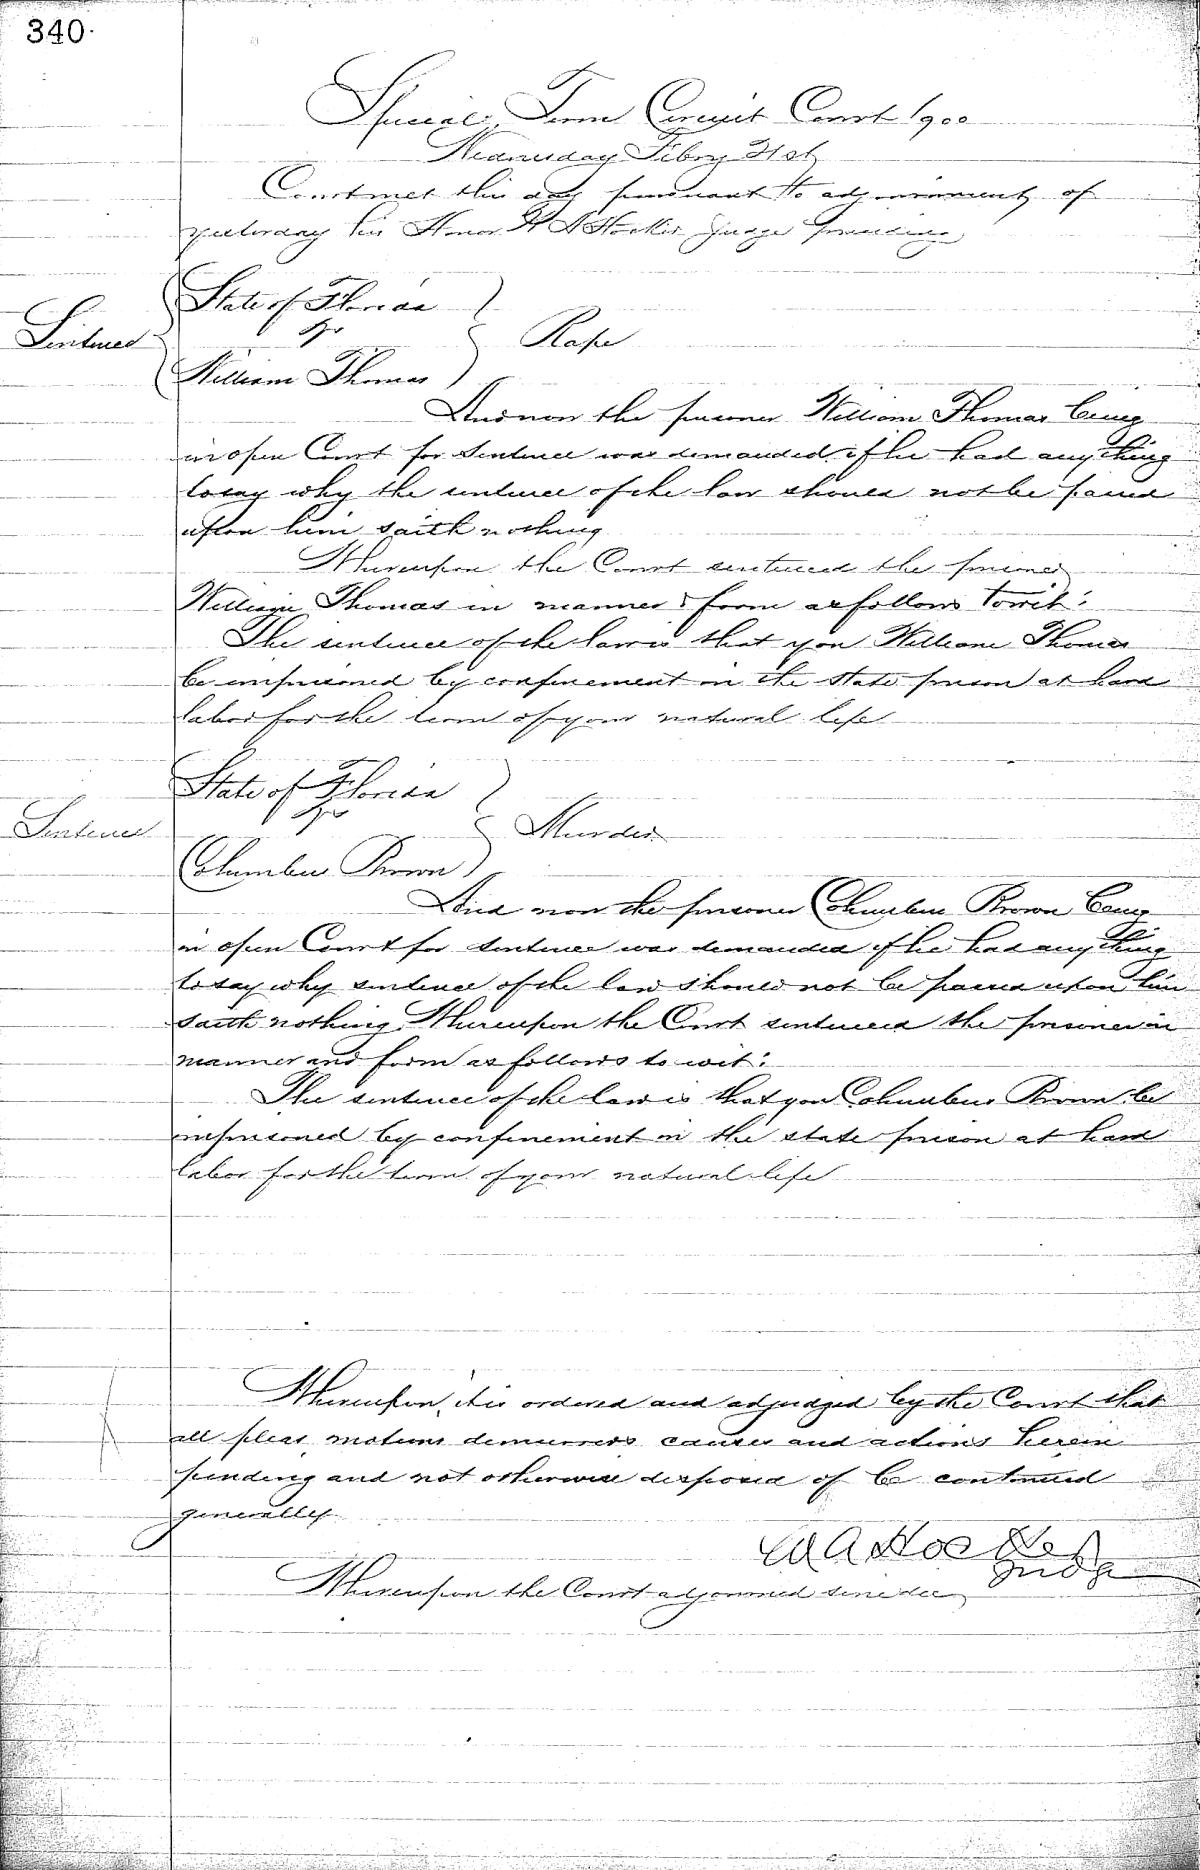 340.
Special Term Circuit Court 1900
Wednesday Febry 21st
Court met this day pursuant to adjournment of
yesterday his Honor W A Hocker Judge presiding
State of Florida
vs
Sentence
Rape
William Thomas
And now the prisoner William Thomas being
in open Court for sentence was demanded if he had anything
to say why the sentence of the law should not be passed
upon him saith nothing
Whereupon the Court sentenced the prisoner
William Thomas in manner & form as follows to wit:
The sentence of the law is that you William Thomas
be imprisoned by confinement in the State prison at hard
labor for the term of your natural life
State of Florida
vs
Sentence
Murder
Columbus Brown
And now the prisoner Columbus Brown being
in open Court for sentence was demanded if he had anything
to say why sentence of the law should not be passed upon him
saith nothing Whereupon the Court sentenced the prisoner in
manner and form as follows to wit:
The sentence of the law is that you Columbus Brown be
imprisoned by confinement in the state prison at hard
labor for the term of your natural life
Whereupon it is ordered and adjudged by the Court that
all pleas motions demurrers causes and actions herein
pending and not otherwise disposed of be continued
generally
W A Hocker
Judge
Whereupon the Court adjourned sine die